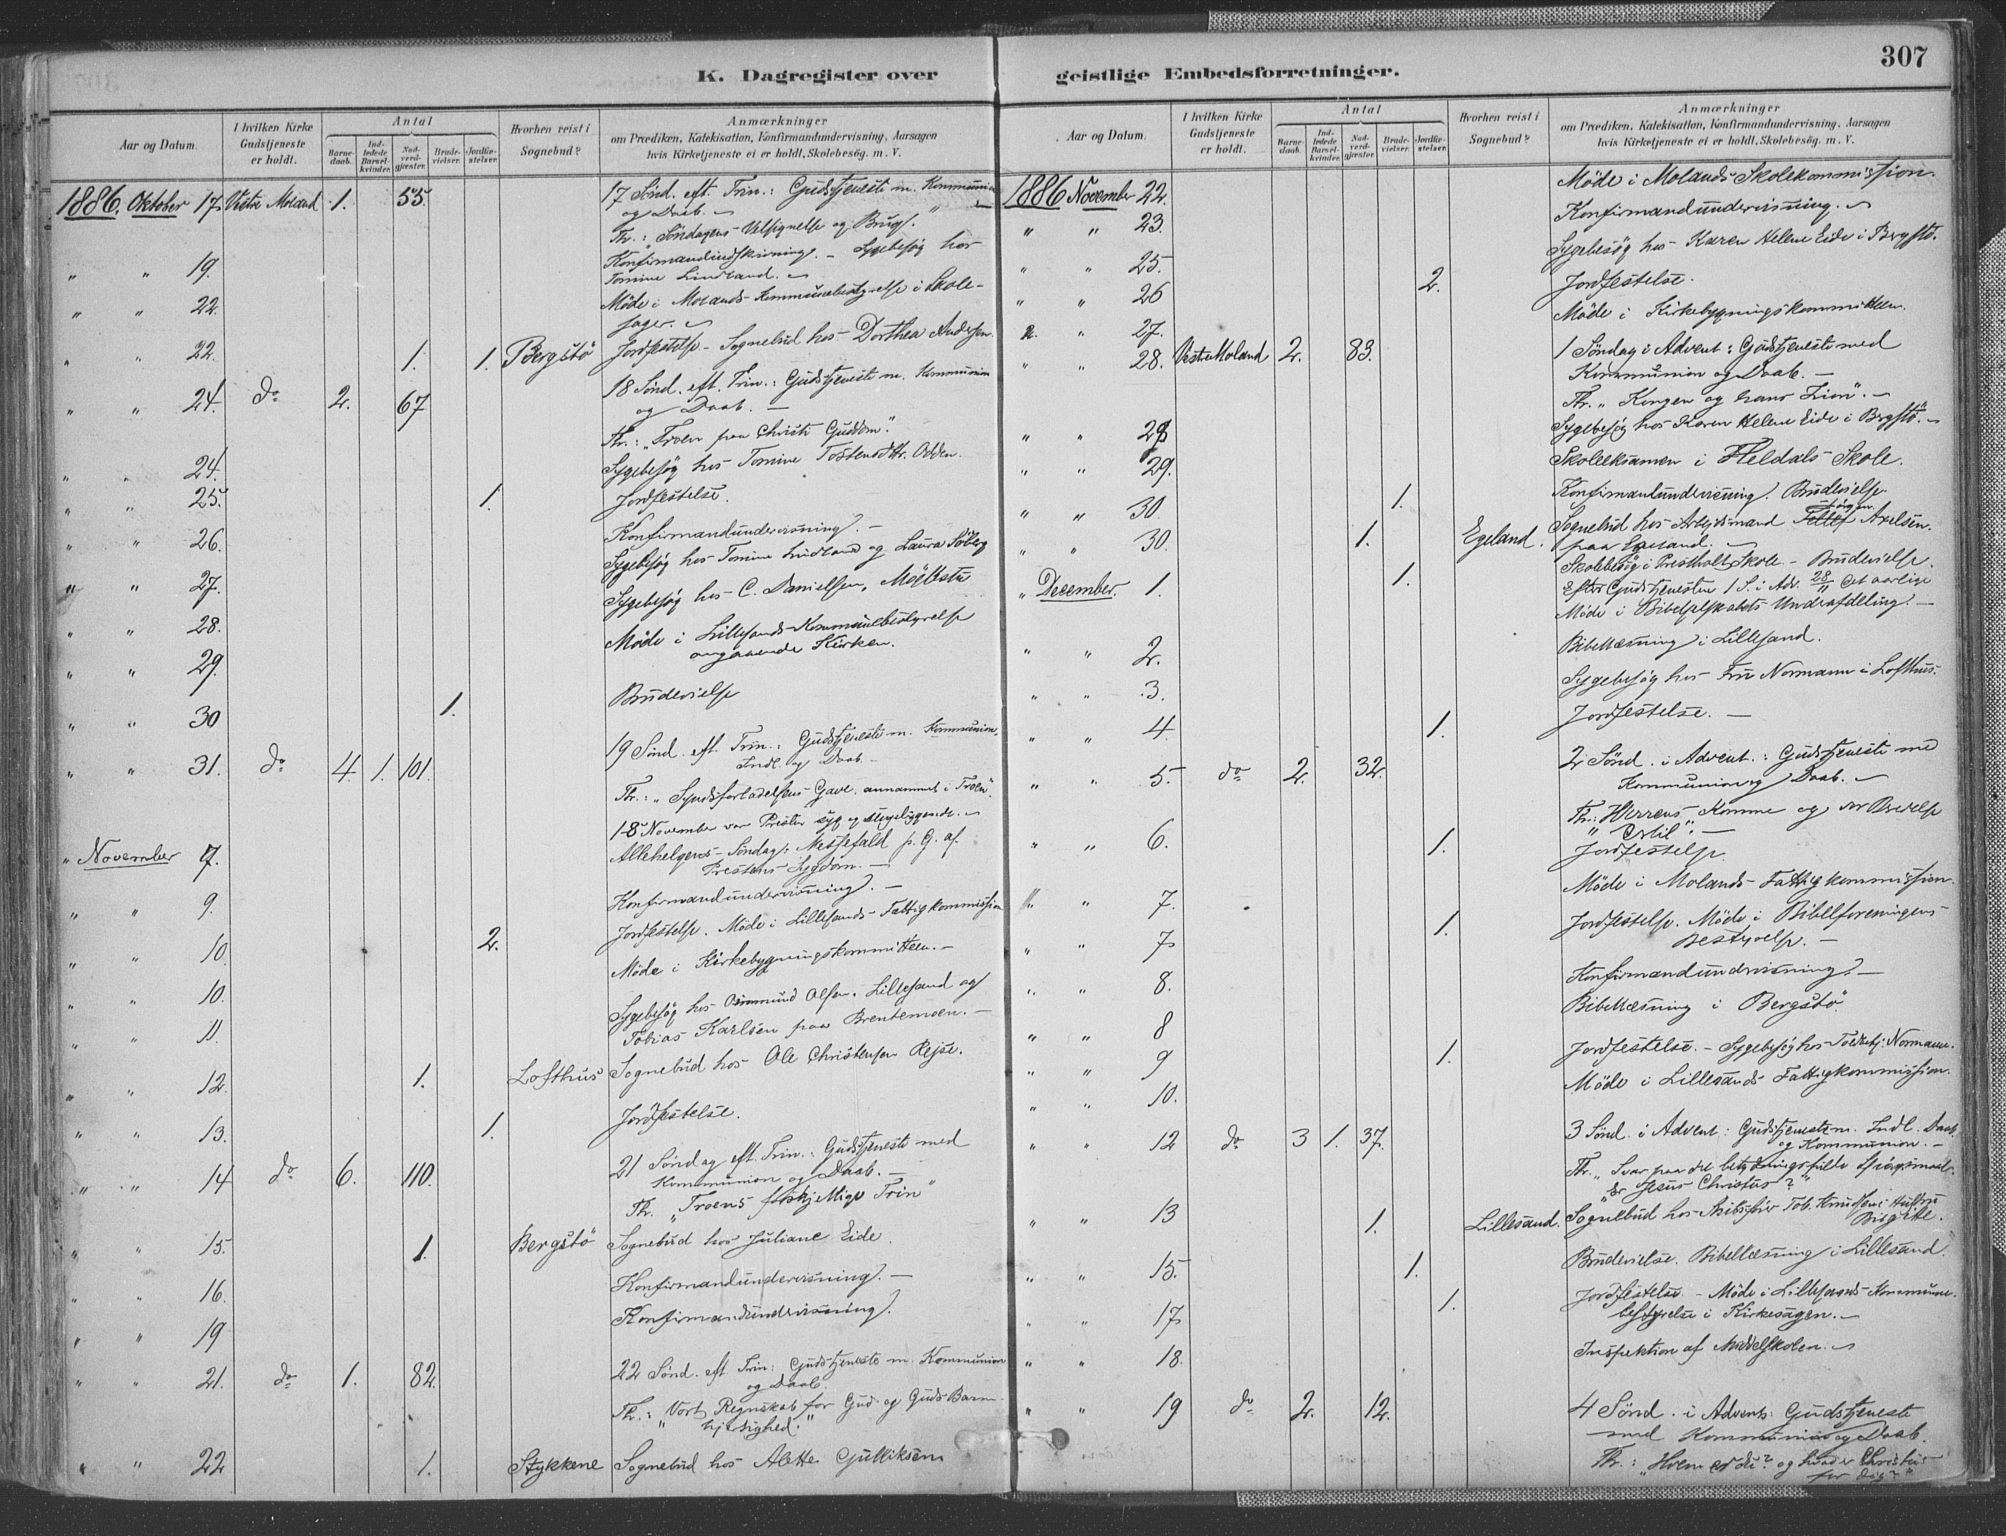 307
K. Dagregister over
Aar og Datum.
I hvilken Kirke Gudstjeneste er holdt.
Antal
Barnedaab.
Indledede Barselkvinder.
Nadverdgjæster.
Brudevielser.
Jordfæstelser
Hvorhen reist i Sognebud?
Anmærkninger
om Prædiken, Katekisation, Konfirmandundervisning, Aarsagen
hvis Kirketjeneste ei er holdt, Skolebesög. m. V.
1886. Oktober 17. Vestre Moland 1. 55. 17 Sönd. eft. Trin.: Gudstjeneste m. Kommunion
og Daab.
Th.: Söndagens Velsignelse og Brug.
" " 19. Konfirmandindskrivning. – Sygebesög hos
Tomine Lindland.
" " 22. Möde i Molands Kommunebestyrelse i Skole-
sager.
" " 22. 1. 1. Bergstö Jordfestelse – Sognebud hos Dorthea Andersen
" " 24. do 2. 67 18 Sönd. eft. Trin.: Gudstjeneste m. Kommunion
og Daab. –
Th.: "Troen paa Christi Guddom".
" " 24. Sygebesög hos Tomine Tostensdtr. Odden.
" " 25. 1. Jordfestelse.
" " 26. Konfirmandundervisning. –
" " 27. Sygebesög hos Tomine Lindland og Laura Söberg
" " 28. Sygebesög hos C. Danielsen,
" " 29. Möde i Lillesands Kommunebestyrelse
angaaende Kirken.
" " 30 1. Brudevielse
" " 31. do 4. 1. 101. 19 Sönd. eft. Trin.: Gudstjeneste m. Kommunion,
Indl. og Daab –
Th.: "Syndsforladelsens Gave, annammet i Troen".
1-8 November var Presten syg og sengeliggende.
" November 7. Allehelgens-Söndag: Messefald p. G. af
Prestens Sygdom. –
" " 9. Konfirmandundervisning. –
" " 10. 2. Jordfestelse. Möde i Lillesands Fattigkommission
" " 10. Möde i Kirkebygningskommitteen. –
" " 11. Sygebesög hos Osmund Olsen, Lillesand og
Tobias Karlsen paa Brentemoen. –
" " 12. 1. Lofthus Sognebud hos Ole Christensen Rejse.
" " 13. 1. Jordfestelse.
" " 14 do 6. 110. 21 Söndag eft. Trin.: Gudstjeneste med
Kommunion og Daab. –
Th. "Troens forskjellige Trin"
" " 15. 1. Bergstö Sognebud hos Juliane Eide.
" " 16. Konfirmandundervisning. –
" " 19 Konfirmandundervisning.
" " 21. do 1. 82. 22 Sönd. eft. Trin: Gudstjeneste m. Kommunion
og Daab.
Th.: "Vort Regnskab for Gud og Guds Barm-
hjertighed."
" " 22 1. Stykkene Sognebud hos Alette Gulliksen
geistlige Embedsforretninger.
Aar og Datum.
I hvilken Kirke Gudstjeneste er holdt.
Antal
Barnedaab.
Indledede Barselkvinder.
Nadverdgjæster.
Brudevielser.
Jordfæstelser.
Hvorhen reist i Sognebud?
Anmærkninger
om Prædiken, Katekisation, Konfirmandundervisning, Aarsagen
hvis Kirketjeneste ei er holdt, Skolebesög. m. V.
1886 November 22. Möde i Molands Skolekommission
" " 23. Konfirmandundervisning.
" " 25. Sygebesög hos Karen Helene Eide i Bergstö.
" " 26 2. Jordfestelse.
" " 27. Möde i Kirkebygningskommitteen.
" " 28. Vestre Moland 2. 83. 1 Söndag i Advent: Gudstjeneste med
Kommunion og Daab. –
Th. "Kongen og hans Zion". –
" " 28 Sygebesög hos Karen Helene Eide i Bergstö. –
" " 29. Skoleeksamen i Heldals Skole.
" " 30 1. Konfirmandundervisning. Brudevielse
" " 30. 1. Egeland. Sognebud hos Arbejdsmand Axelsen
paa Egeland.
" December. 1. 1. Skolebesög i Prestholt Skole – Brudevielse.
Efter Gudstjenesten 1 S. i Adv. 28/11 det aarlige
Möde i Bibelselskabets Underafdeling. –
" " 2. Bibellæsning i Lillesand.
" " 3. Sygebesög hos Fru Normann i Lofthus.
" " 4 1. Jordfestelse. –
" " 5. do 2. 32. 2 Sönd. i Advent.: Gudstjeneste med
Kommunion og Daab. –
Th.: Herrens Komme og vor Beredelse
" " 6. 1. Jordfestelse
" " 7. Möde i Molands Fattigkommission.
" " 7 1. Jordfestelse. Möde i Bibelforeningens
Bestyrelse. –
" " 8. Konfirmandundervisning. –
" " 8 Bibellæsning i Bergstö.
" " 9 1. Jordfestelse. – Sygebesög hos Normann.
" " 10. Möde i Lillesands Fattigkommission.
" " 12 do 3 1. 37. 3 Sönd. i Advent: Gudstjeneste m. Indl. Daab
og Kommunion. –
Th. "Svar paa det betydningsfulde Spörgsmaal:
"Er Jesus Christus?"
" " 13 1. Lillesand. Sognebud hos Tob. Knudsens Hustru
Birgitte.
" " 15. 1. Brudevielse. Bibellæsning i Lillesand.
" " 17 1. Jordfestelse – Möde i Lillesands Kommune-
bestyrelse i Kirkesagen. –
" " 18. Inspektion af Middelskolen.
" " 19 do 2. 12. 4 Sönd. i Advent: Gudstjeneste
med Kommunion og Daab.
Th.: "Hvem er du? og hvad er Christus
for dig?"